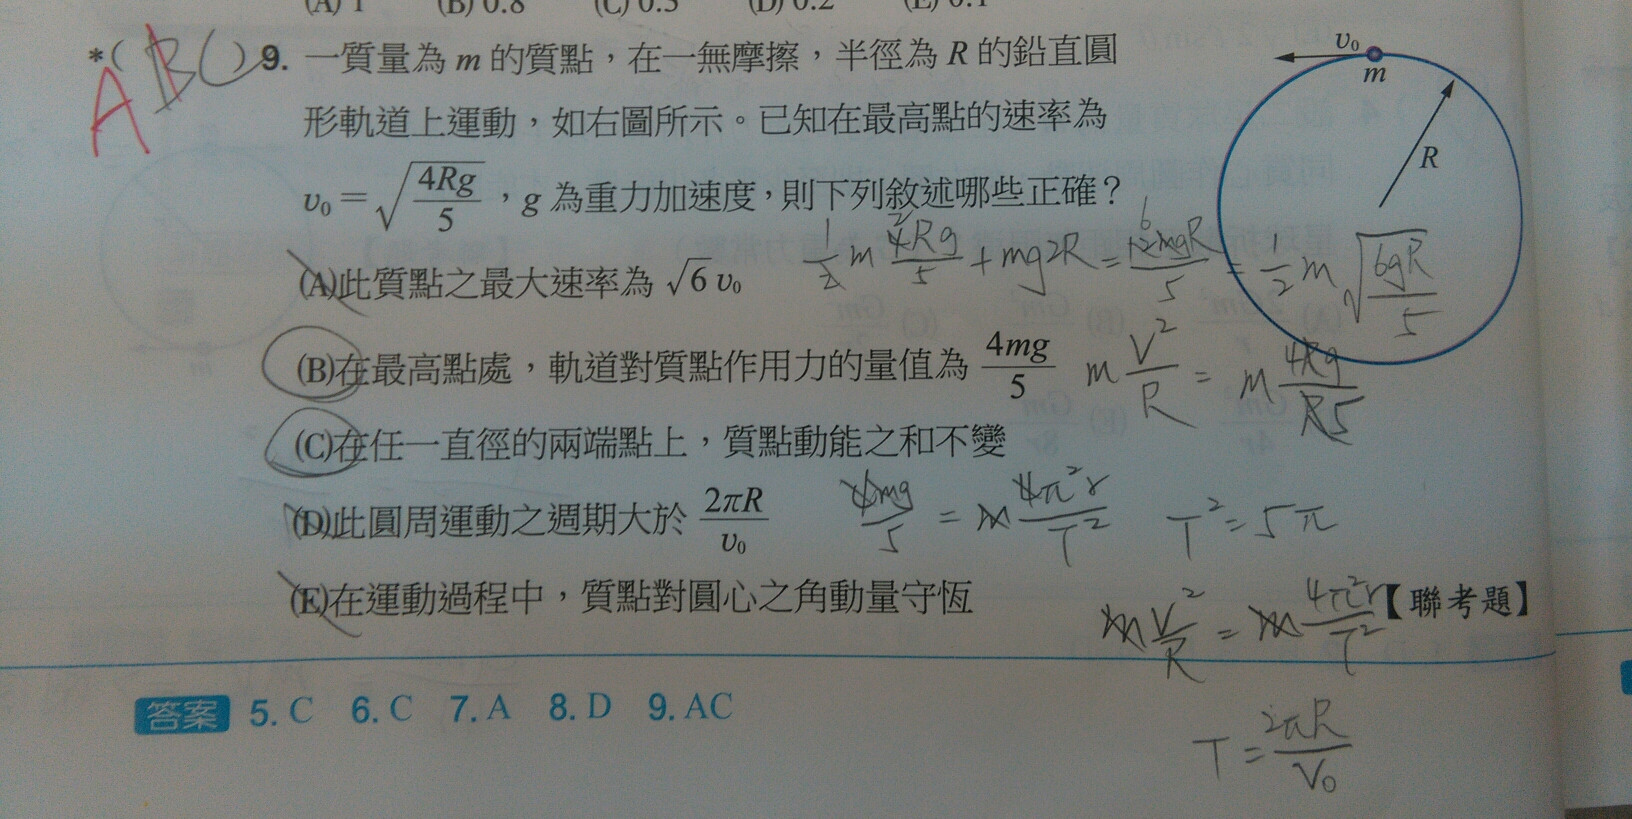 (A) 1 (B) 0.8 (C) 0.5 (D) 0.2 (E) 0.1
*( ABC )9. 一質量為 m 的質點，在一無摩擦，半徑為 R 的鉛直圓
形軌道上運動，如右圖所示。已知在最高點的速率為
v₀＝√(4Rg/5)，g 為重力加速度，則下列敘述哪些正確？
v₀
m
R
(A)此質點之最大速率為 √6 v₀
1/2 m 4Rg/5 + mg2R = 12mgR/5 = 1/2 m √(6gR/5)
(B)在最高點處，軌道對質點作用力的量值為 4mg/5
m V²/R = m 4Rg/R5
(C)在任一直徑的兩端點上，質點動能之和不變
(D)此圓周運動之週期大於 2πR/v₀
4mg/5 = m 4π²r/T² T² = 5π
(E)在運動過程中，質點對圓心之角動量守恆
【聯考題】
m V²/R = m 4π²r/T²
T = 2πR/V₀
答案 5. C 6. C 7. A 8. D 9. AC